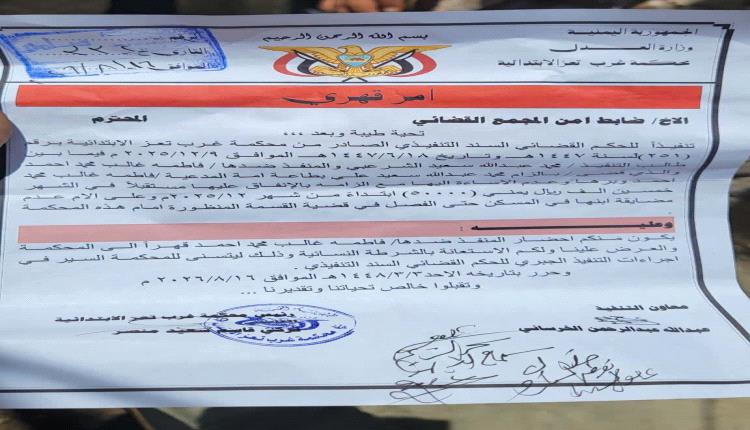 بسم الله الرحمن الرحيم
الجمهورية اليمنية
وزارة العدل
محكمة غرب تعز الابتدائية
امر قهري
الاخ/ ضابط امن المجمع القضائي المحترم
تحية طيبة وبعد ...
تنفيذاً للحكم القضائي السند التنفيذي الصادر من محكمة غرب تعز الابتدائية برقم
(٢٥١) لسنة ١٤٤٧هـ وتاريخ ١٤٤٧/٦/١٨هـ الموافق ٢٠٢٥/١٢/٩م فيما بين
طالب التنفيذ/ محمد عبدالله سعيد الشرعبي والمنفذ ضدها/ فاطمه غالب محمد احمد
والذي قضى الزام محمد عبدالله سعيد علي بطاعة امة المدعية/فاطمه غالب محمد
احمد وبرها اليها مع الزامه بالإنفاق عليها مستقبلاً في الشهر
خمسين الف ريال يمني ابتداءً من شهر ٢٠٢٥/١٢م وعلى الام عدم
مضايقة ابنها في المسكن حتى الفصل في قضية القسمة المنظورة امام هذه المحكمة
وعليـــه :
يكون منكم احضار المنفذ ضدها/ فاطمه غالب محمد احمد قهراً الى المحكمة
والعرض علينا ولكم الاستعانة بالشرطة النسائية وذلك ليتسنى للمحكمة السير في
اجراءات التنفيذ الجبري للحكم القضائي السند التنفيذي .
وحرر بتاريخه الاحد ١٤٤٨/٣/٣هـ الموافق ٢٠٢٦/٨/١٦م
وتقبلوا خالص تحياتنا وتقديرنا ...
معاون التنفيذ
عبدالله عبدالرحمن الخرساني
رئيس محكمة غرب تعز الابتدائية